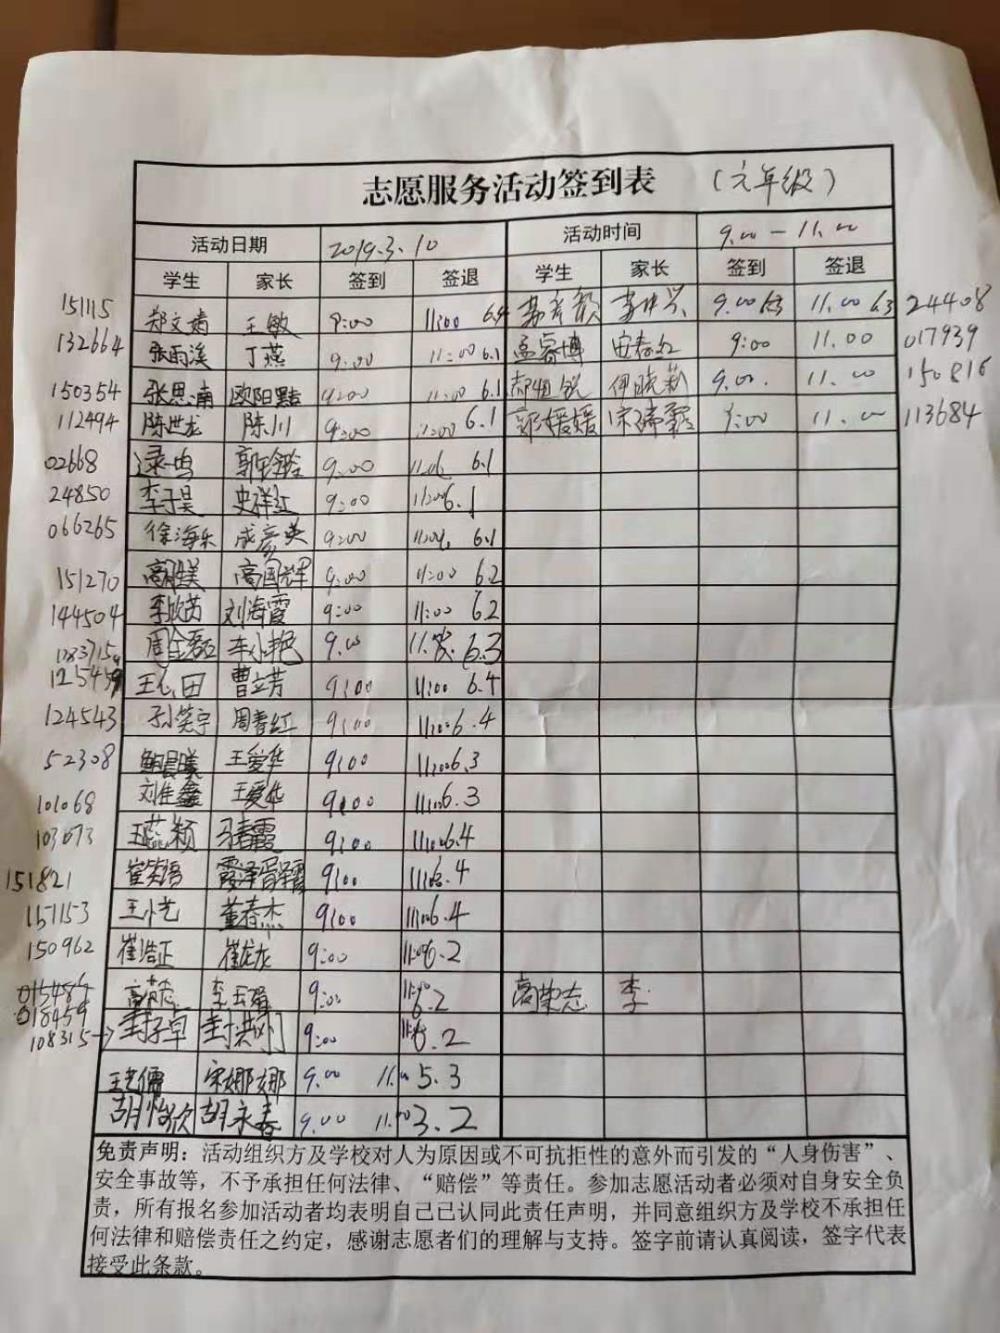 志愿服务活动签到表 (六年级)
活动日期 2019.3.10 活动时间 9.00 - 11.00
学生 家长 签到 签退 学生 家长 签到 签退
151115 郑文婧 王敏 9:00 11:00 6.4 9.00 6.3 11.00 6.3 24408
132664 张雨溪 丁燕 9:00 11:00 6.1 孟睿博 9:00 11.00 017939
150354 张思涵 欧阳 9:00 11:00 6.1 伊晓莉 9.00. 11.00 150816
112494 陈世龙 陈川 9:00 11:00 6.1 郭媛媛 9:00 11.00 113684
02668 9:00 6.1
24850 李子昊 史祥红 9:00 11:00 6.1
066265 徐海乐 成彦英 9:00 6.1
151270 高国辉 9:00 11:00 6.2
144504 李欣芮 刘海霞 9:00 11:00 6.2
周金磊 李小艳 9.00 6.3
王心田 曹立芳 9:00 11:00 6.4
124543 孙笑宇 周春红 9:00 11:00 6.4
52308 王爱华 9:00 11:00 6.3
101068 刘佳鑫 王爱华 9:00 11:00 6.3
103073 王蕊颖 马春霞 9:00 11:00 6.4
151821 崔笑语 9:00 6.4
151153 王小艺 董春杰 9:00 6.4
150962 崔浩正 崔龙龙 9:00 6.2
015486 李玉娟 9:00 6.2 高荣志 李
018459
108315→ 封子卓 封洪刚 9:00 6.2
王艺儒 宋娜娜 9.00 11.00 5.3
胡怡欣 胡永春 9.00 11.00 3.2
免责声明：活动组织方及学校对人为原因或不可抗拒性的意外而引发的“人身伤害”、
安全事故等，不予承担任何法律、“赔偿”等责任。参加志愿活动者必须对自身安全负
责，所有报名参加活动者均表明自己已认同此责任声明，并同意组织方及学校不承担任
何法律和赔偿责任之约定，感谢志愿者们的理解与支持。签字前请认真阅读，签字代表
接受此条款。